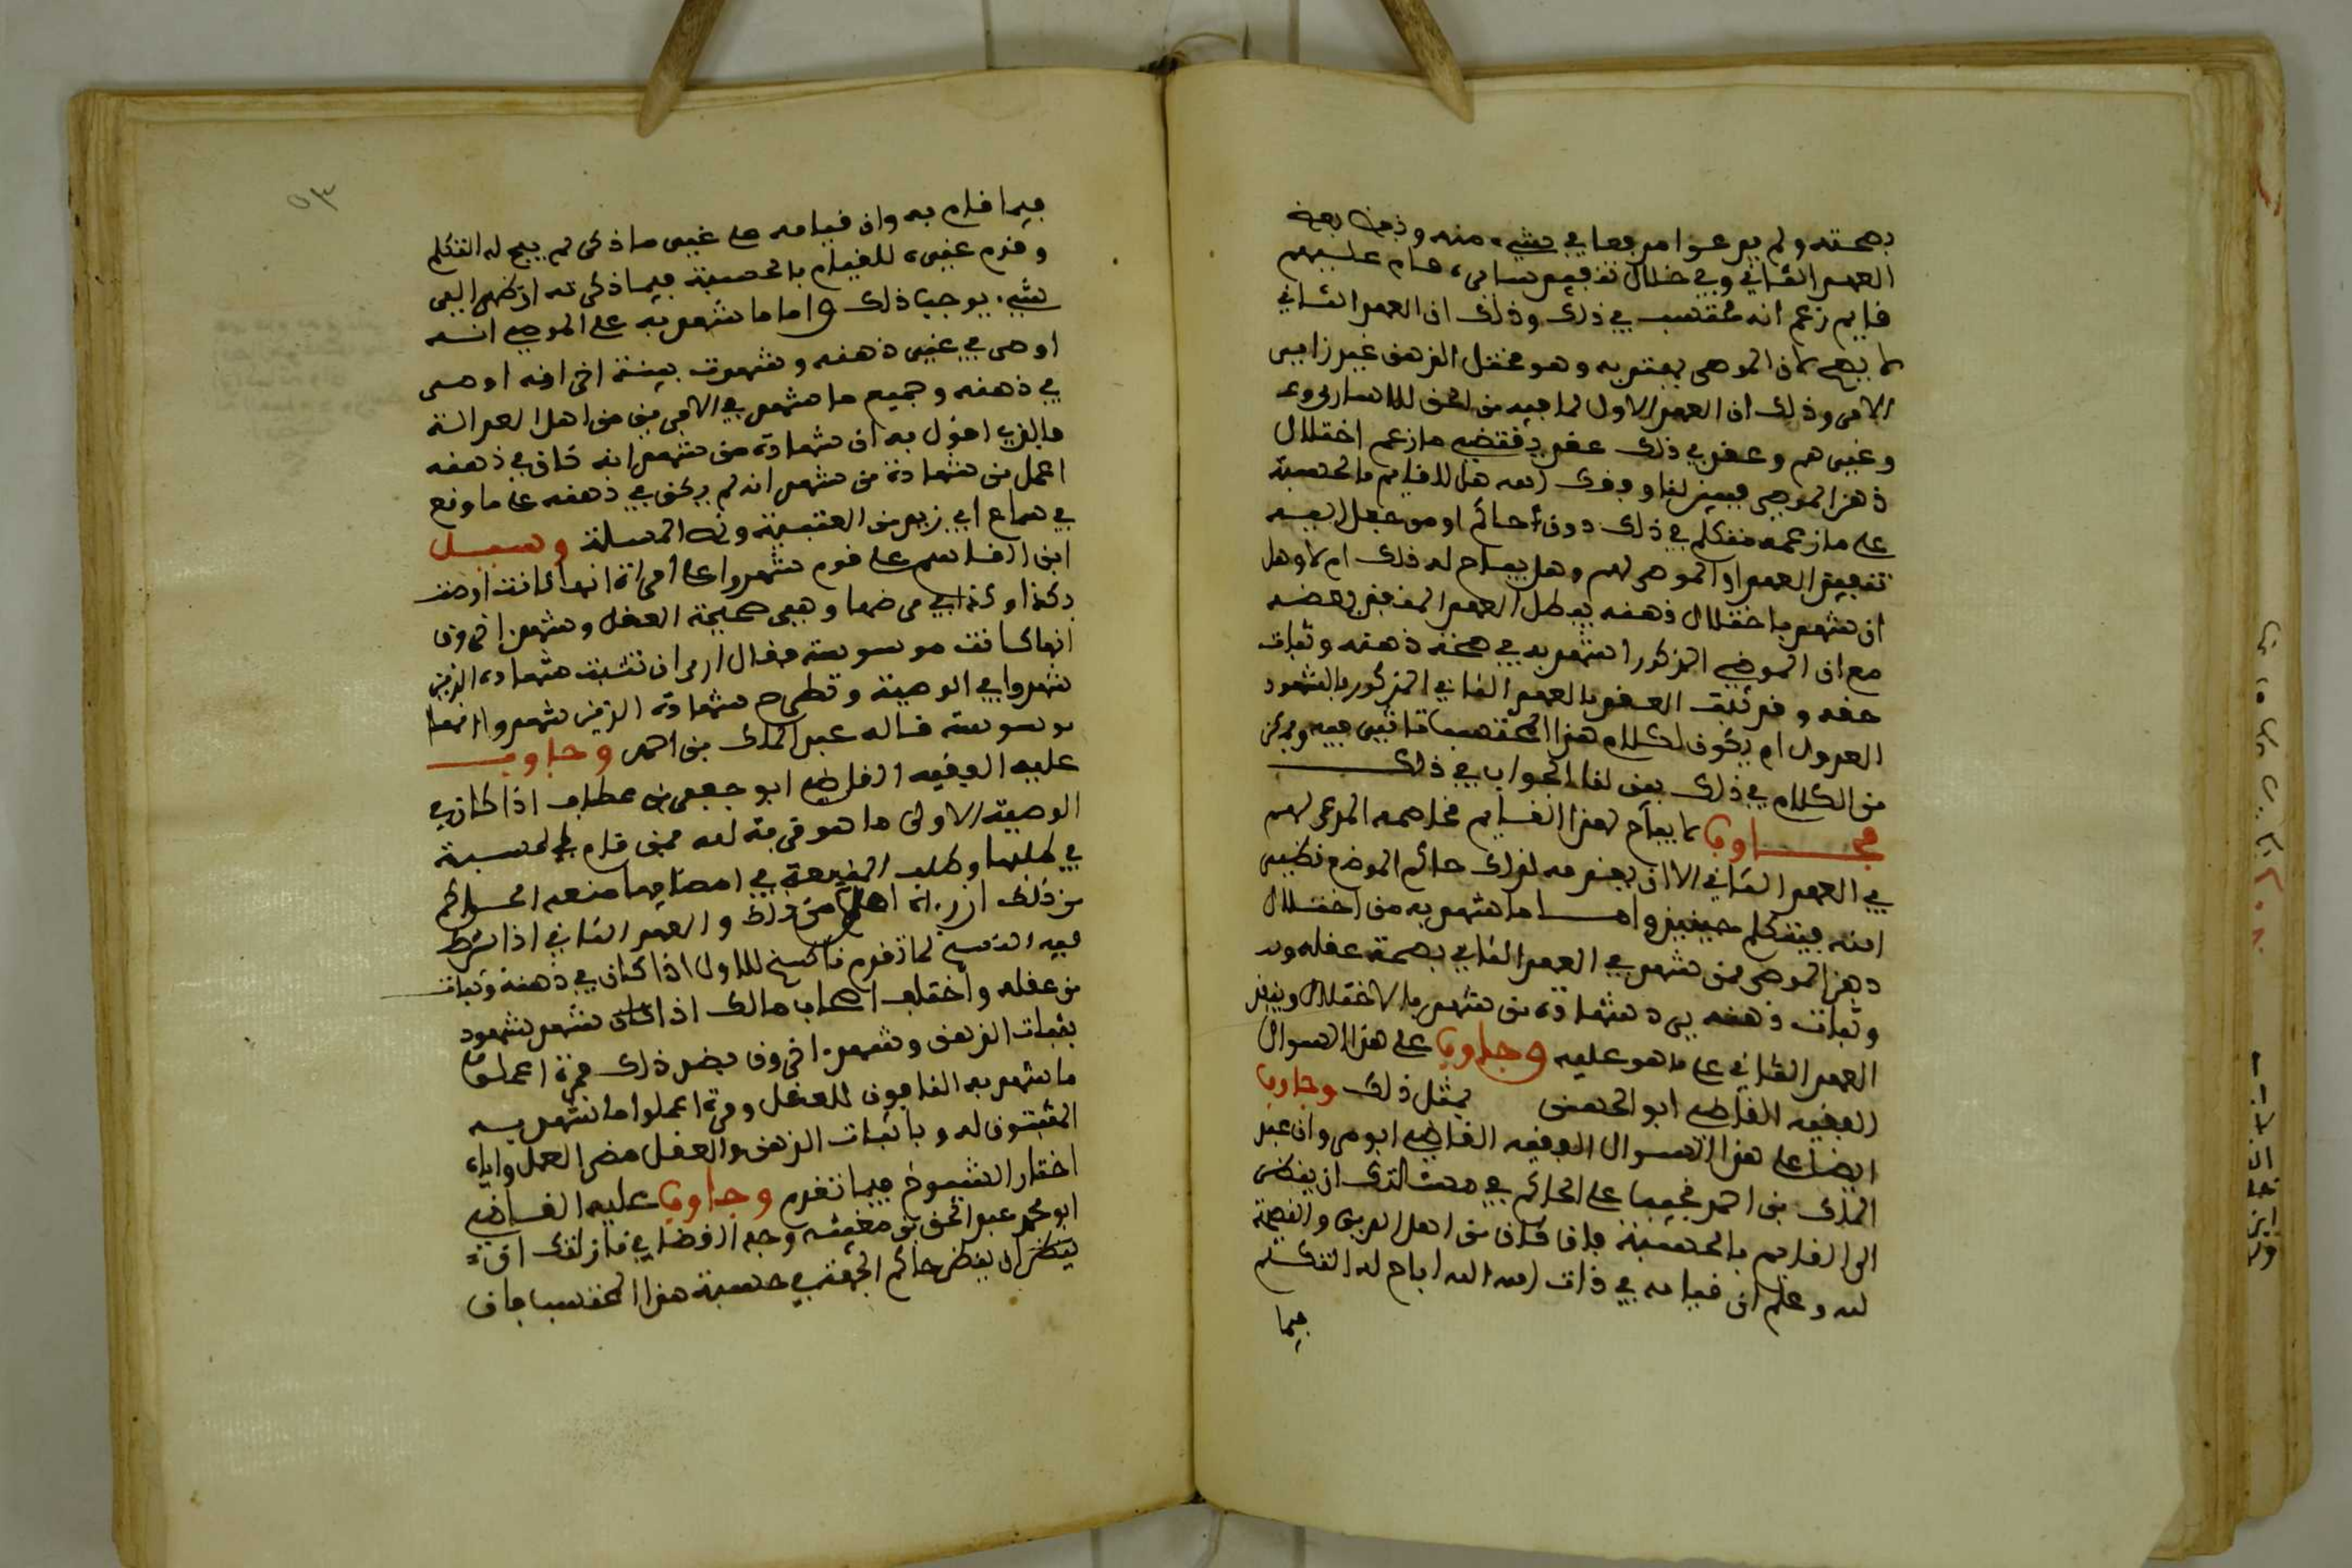 بصحته ولم يدعوا مدفعا في شيء منه وذهب بعض
العهد الثاني وفي خلال تنفيذ سابره قام عليهم
قايم زعم انه محتسب في ذلك وذلك ان العهد الثاني
لا يصح لان الموصي بعقد به وهو مختل الذهن غير زايس
الامر وذلك ان العهد الاول لما فيه من الحق للاسارى
وغيرهم وعقد في ذلك عقد يقتضي ما زعم اختلال
ذهن الموصي فبين لنا وفقك الله هل للقايم بالحسبة
على ما زعمه متكلم في ذلك دون الحاكم او من جعل اليه
تنفيذ العهد او الموصى لهم وهل يباح له ذلك ام لا وهل
ان شهد باختلال ذهنه يبطل العهد المنفذ بعضه
مع ان الموصي المذكور اشهد به في صحة ذهنه وثبات
عقله وقد ثبت العقد بالعهد الثاني المذكور بالشهود
العدول ام يكون لكلام هذا المحتسب تاثير فيه ويمكن
من الكلام في ذلك بين لنا الجواب في ذلك
فجاوب لا يباح لهذا القايم مخاصمة الموصى لهم
في العهد الثاني الا ان يقدمه لذلك حاكم الموضع نظير
امته فيتكلم حينيذ واما ما شهد به من اختلال
ذهن الموصي فمن شهد في العهد الثاني بصحة عقله
وثبات ذهنه يرد شهادة من شهد بالاختلال وينفذ
العهد الثاني على ما هو عليه وجاوب على هذا السوال
الفقيه القاضي ابو الحسن بمثل ذلك وجاوب
ايضا على هذا السوال الفقيه القاضي ابو مروان عبد
الملك بن احمد مجيبا على الحاكم في محتسب الذي ان ينظر
الى القايم بالحسبة فان كان من اهل الدين والفضة
لله وعلم ان قيامه في ذات الله اباح له التكلم
فيما
٥٣
فيما قام به وان قيامه على غير ما ذكر لم يبح له التكلم
وقدم غيره للقيام بالحسبة فيما ذكرته ان ظهر اليه
شيء يوجب ذلك واما ما شهد به على الموصي انه
اوصى في غير ذهنه وشهدت بينة اخرى انه اوصى
في ذهنه وجميع ما شهد في الامرين من اهل العدالة
فالذي اقول به ان شهادة من شهد انه كان في ذهنه
اعمل من شهادة من شهد انه لم يكن في ذهنه على ما وقع
في سماع ابي زيد من العتبية ونص المسلة وسيل
ابن القاسم على قوم شهدوا على امراة انها كانت اوصت
بكذا وكذا في مرضها وهي صحيحة العقل وشهد اخرون
انها كانت موسوسة فقال ارى ان تثبت شهادة الذين
شهدوا في الوصية وتطرح شهادة الذين شهدوا انها
موسوسة قاله عبد الملك بن احمد وجاوب
عليه الفقيه القاضي ابو جعفر بن عطاف اذا كان في
الوصية الاولى ما هو قربة لله فمن قام بالحسبة
في طلبها وطلب المنفعة في امضايها منعه الحاكم
من ذلك ان رءاه اهلا من ذلك والعهد الثاني اذا شرط
فيه الفسخ لما تقدم ناسخ للاول اذا كان في ذهنه وثبات
من عقله واختلف اصحاب مالك اذا شهد شهود
بثبات الذهن وشهد اخرون بضد ذلك فمرة اعملوا
ما شهد به النافون للعقل ومرة اعملوا ما شهد به
المثبتون له وباثبات الذهن والعقل مضى العمل واياه
اختار الشيوخ فيما تقدم وجاوب عليه القاضي
ابو محمد عبد الحق بن مغيث وجه القضا في نازلتك ان
ينظر حاكم الجهة في حسبة هذا المحتسب فان